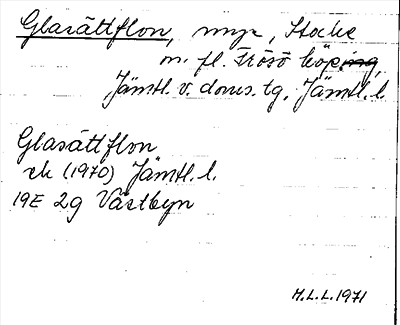 Glasättflon, myr, Stocke
m. fl. Frösö köping,
Jämtl. v. doms. tg, Jämtl. l.
Glasättflon
ek (1970) Jämtl. l.
19E 2g Västbyn
H.L.L. 1971